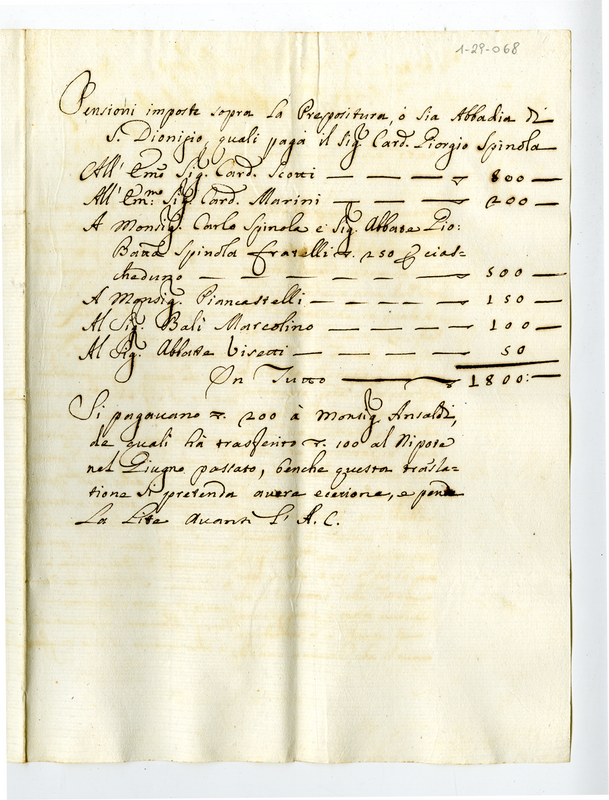 1-29-068
Pensioni imposte sopra La Prepositura, ò sia Abbadia di
S. Dionigio, quali paga il Sig. Card. Giorgio Spinola
All' Emo Sig. Card. Scotti — — — 800 —
All' Em:mo Sig. Card. Marini — — — 200 —
A Monsig. Carlo Spinola e Sig. Abbate Gio:
Batta Spinola fratelli 250 cias=
cheduno — — — — — 500 —
A Monsig. Piancastelli — — — — 150 —
Al Sig. Balì Marcolino — — — — 100 —
Al Sig. Abbate Visetti — — — — 50
In Tutto — 1800: —
Si pagavano 200 à Monsig Ansaldi,
de quali hà trasferito 100 al Nipote
nel Giugno passato, benche questa trasla=
tione si pretenda avere eccezione, e pende
La Lite Avanti L' A. C.